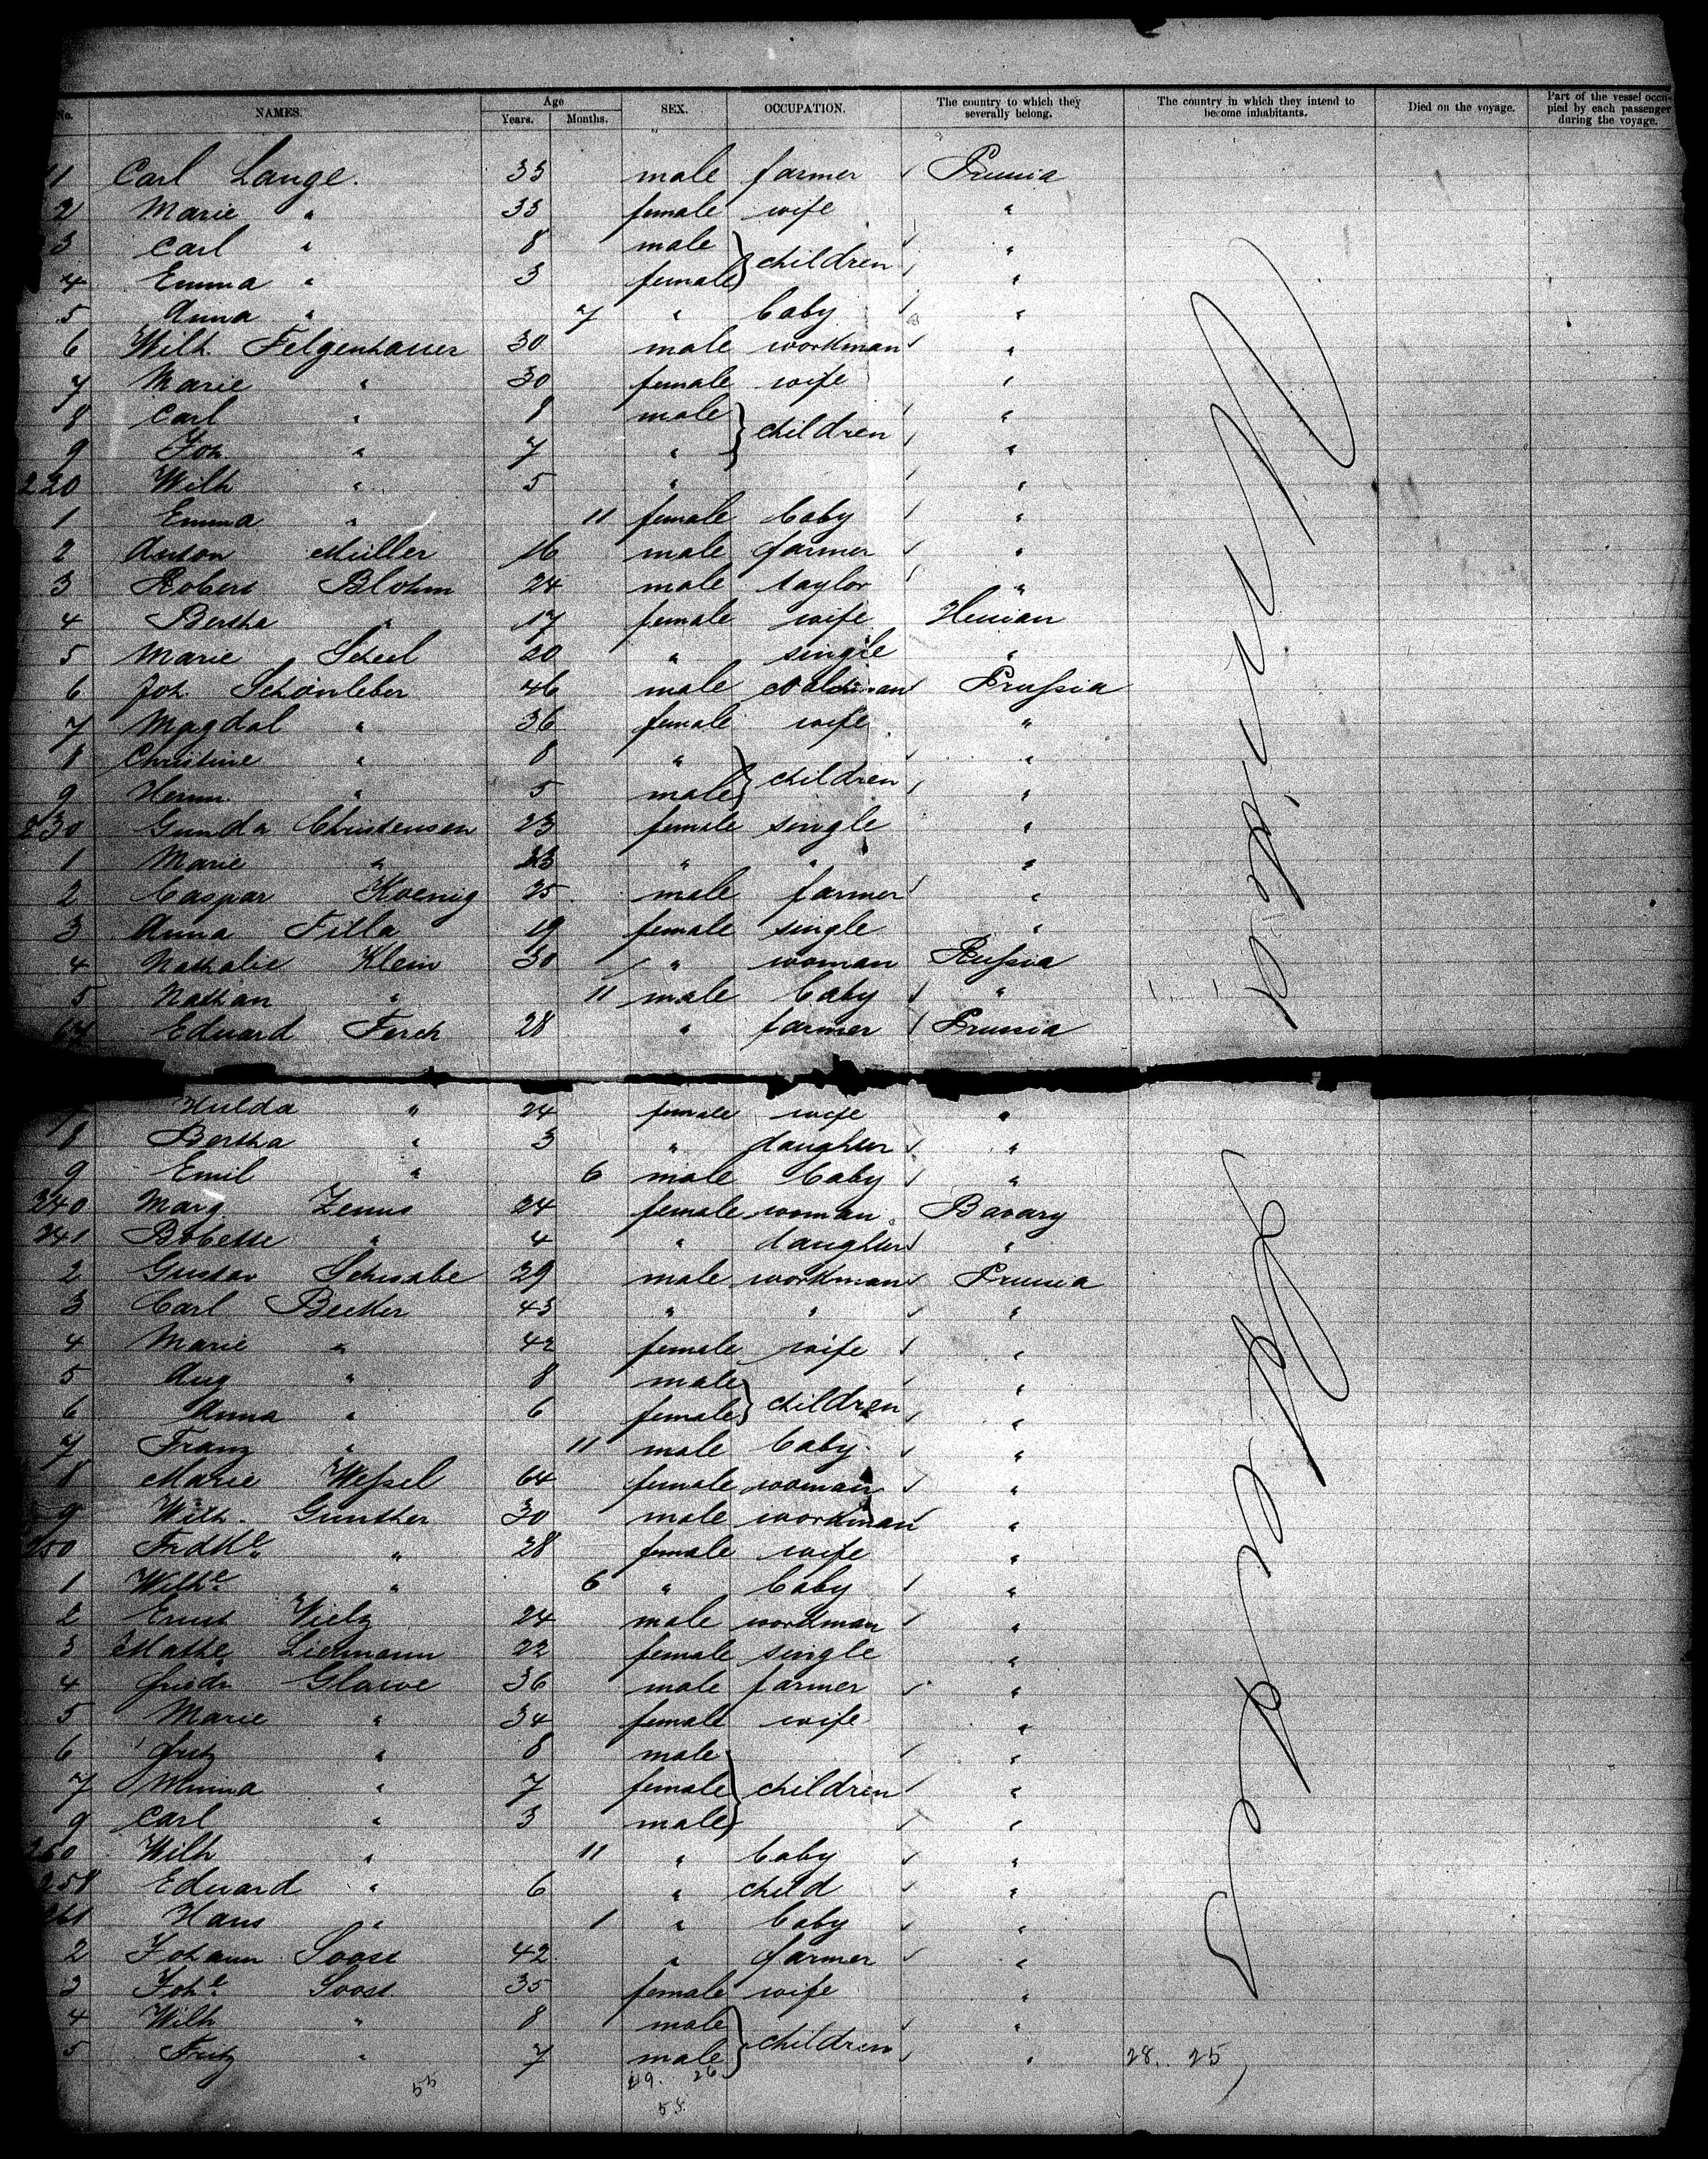 No. NAMES. Age Years. Months. SEX. OCCUPATION. The country to which they severally belong. The country in which they intend to become inhabitants. Died on the voyage. Part of the vessel occupied by each passenger during the voyage.
11 Carl Lange. 33 male farmer Prussia
2 Marie " 33 female wife "
3 Carl " 8 male children "
4 Emma " 3 female "
5 Anna " 7 " baby "
6 Wilh. Felgenhauer 30 male workman "
7 Marie " 30 female wife "
8 Carl " 8 male children "
9 Joh. " 7 " "
220 Wilh " 5 " "
1 Emma " 11 female baby "
2 Anton Müller 16 male farmer "
3 Robert Blohm 24 male taylor "
4 Bertha " 17 female wife Hessian
5 Marie Scheel 20 " single "
6 Joh. Schönleber 46 male Prussia
7 Magdal " 36 female wife "
8 Christine " 8 " children "
9 Herm. " 5 male "
230 Gunda Christensen 23 female single "
1 Marie " 23 " " "
2 Caspar Koenig 25 male farmer "
3 Anna Filla 19 female single "
4 Nathalie Klein 30 " woman Russia
5 Nathan " 11 male baby "
6 Eduard Ferch 28 " farmer Prussia
7 Hulda " 24 female wife "
8 Bertha " 3 " daughter "
9 Emil " 6 male baby "
240 Marg Zenns 24 female woman Bavary
241 Bobette " 4 " daughter "
2 Gustav Schwabe 29 male workman Prussia
3 Carl Becker 43 " " "
4 Marie " 42 female wife "
5 Aug " 8 male children "
6 Anna " 6 female "
7 Franz " 11 male baby "
8 Marie Wessel 64 female woman "
9 Wilh. Gunther 30 male workman "
250 Fridke " 28 female wife "
1 Wilhe " 6 " baby "
2 Ernst Vielz 24 male workman "
3 Mathe Liermann 22 female single "
4 Friedr Glawe 36 male farmer "
5 Marie " 34 female wife "
6 Fritz " 8 male children "
7 Minna " 7 female "
9 Carl " 3 male "
260 Wilh " 11 " baby "
258 Eduard " 6 " child "
261 Hans " 1 " baby "
2 Johann Soost 42 " farmer "
3 Johe Soost 35 female wife "
4 Wilh " 8 male children "
5 Fritz " 7 male "
28. 25
55 29. 26
55.